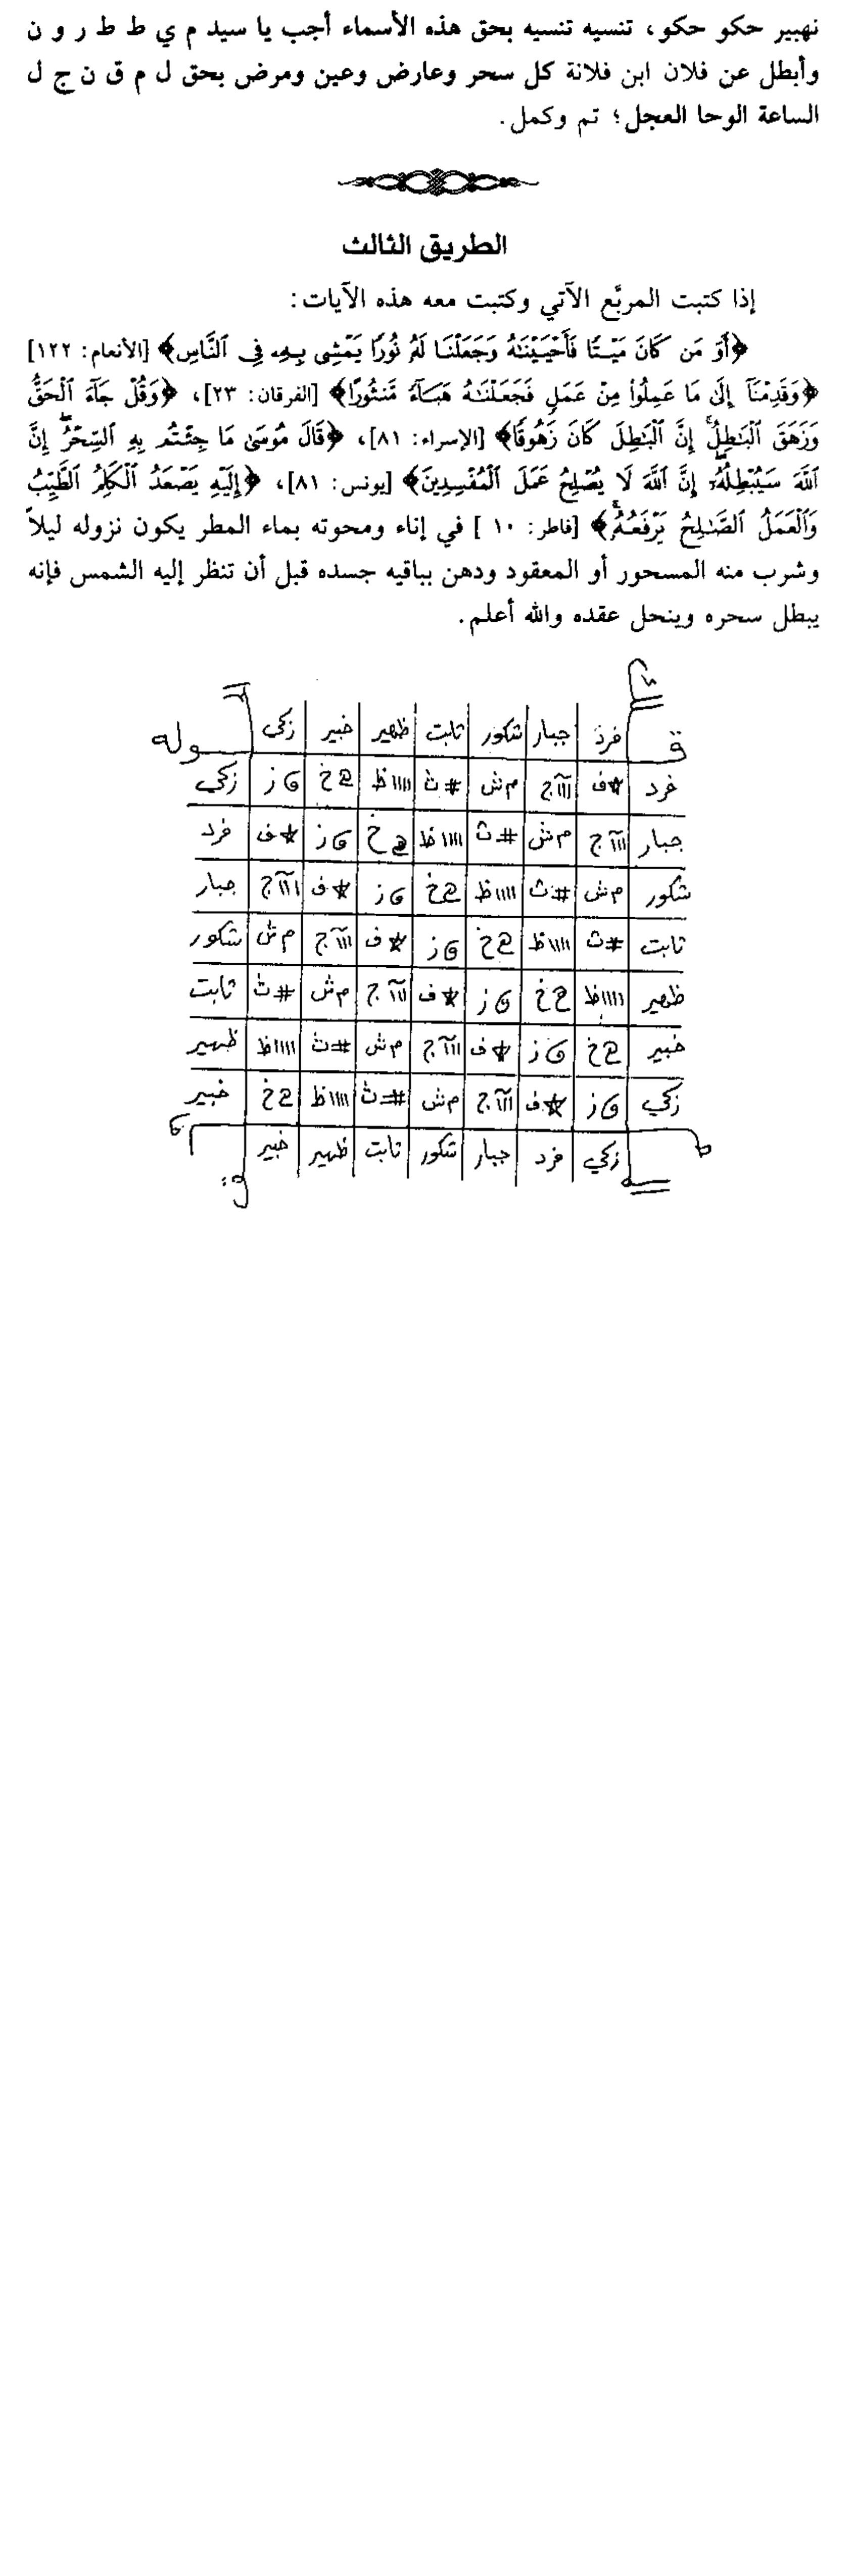 نهبير حكو حكو، تنسيه تنسيه بحق هذه الأسماء أجب يا سيد م ي ط ط ر و ن
وأبطل عن فلان ابن فلانة كل سحر وعارض وعين ومرض بحق ل م ق ن ج ل
الساعة الوحا العجل؛ تم وكمل.
الطريق الثالث
إذا كتبت المربَّع الآتي وكتبت معه هذه الآيات:
﴿أَوَ مَن كَانَ مَيْتًا فَأَحْيَيْنَٰهُ وَجَعَلْنَا لَهُ نُورًا يَمْشِى بِهِۦ فِى ٱلنَّاسِ﴾ [الأنعام: ١٢٢]
﴿وَقَدِمْنَآ إِلَىٰ مَا عَمِلُوا۟ مِنْ عَمَلٍ فَجَعَلْنَٰهُ هَبَآءً مَّنثُورًا﴾ [الفرقان: ٢٣]، ﴿وَقُلْ جَآءَ ٱلْحَقُّ
وَزَهَقَ ٱلْبَٰطِلُ ۚ إِنَّ ٱلْبَٰطِلَ كَانَ زَهُوقًا﴾ [الإسراء: ٨١]، ﴿قَالَ مُوسَىٰ مَا جِئْتُم بِهِ ٱلسِّحْرُ ۖ إِنَّ
ٱللَّهَ سَيُبْطِلُهُۥٓ ۖ إِنَّ ٱللَّهَ لَا يُصْلِحُ عَمَلَ ٱلْمُفْسِدِينَ﴾ [يونس: ٨١]، ﴿إِلَيْهِ يَصْعَدُ ٱلْكَلِمُ ٱلطَّيِّبُ
وَٱلْعَمَلُ ٱلصَّٰلِحُ يَرْفَعُهُۥ ۚ﴾ [فاطر: ١٠ ] في إناء ومحوته بماء المطر يكون نزوله ليلاً
وشرب منه المسحور أو المعقود ودهن بباقيه جسده قبل أن تنظر إليه الشمس فإنه
يبطل سحره وينحل عقده والله أعلم.
ق فرد جبار شكور ثابت ظهير خبير زكي وله
فرد ☆ف ااآج م ش #ث ااااظ خ ز زكي
جبار ااآج م ش #ث ااااظ خ ز ☆ف فرد
شكور م ش #ث ااااظ خ ز ☆ف ااآج جبار
ثابت #ث ااااظ خ ز ☆ف ااآج م ش شكور
ظهير ااااظ خ ز ☆ف ااآج م ش #ث ثابت
خبير خ ز ☆ف ااآج م ش #ث ااااظ ظهير
زكي ز ☆ف ااآج م ش #ث ااااظ خ خبير
زكي فرد جبار شكور ثابت ظهير خبير